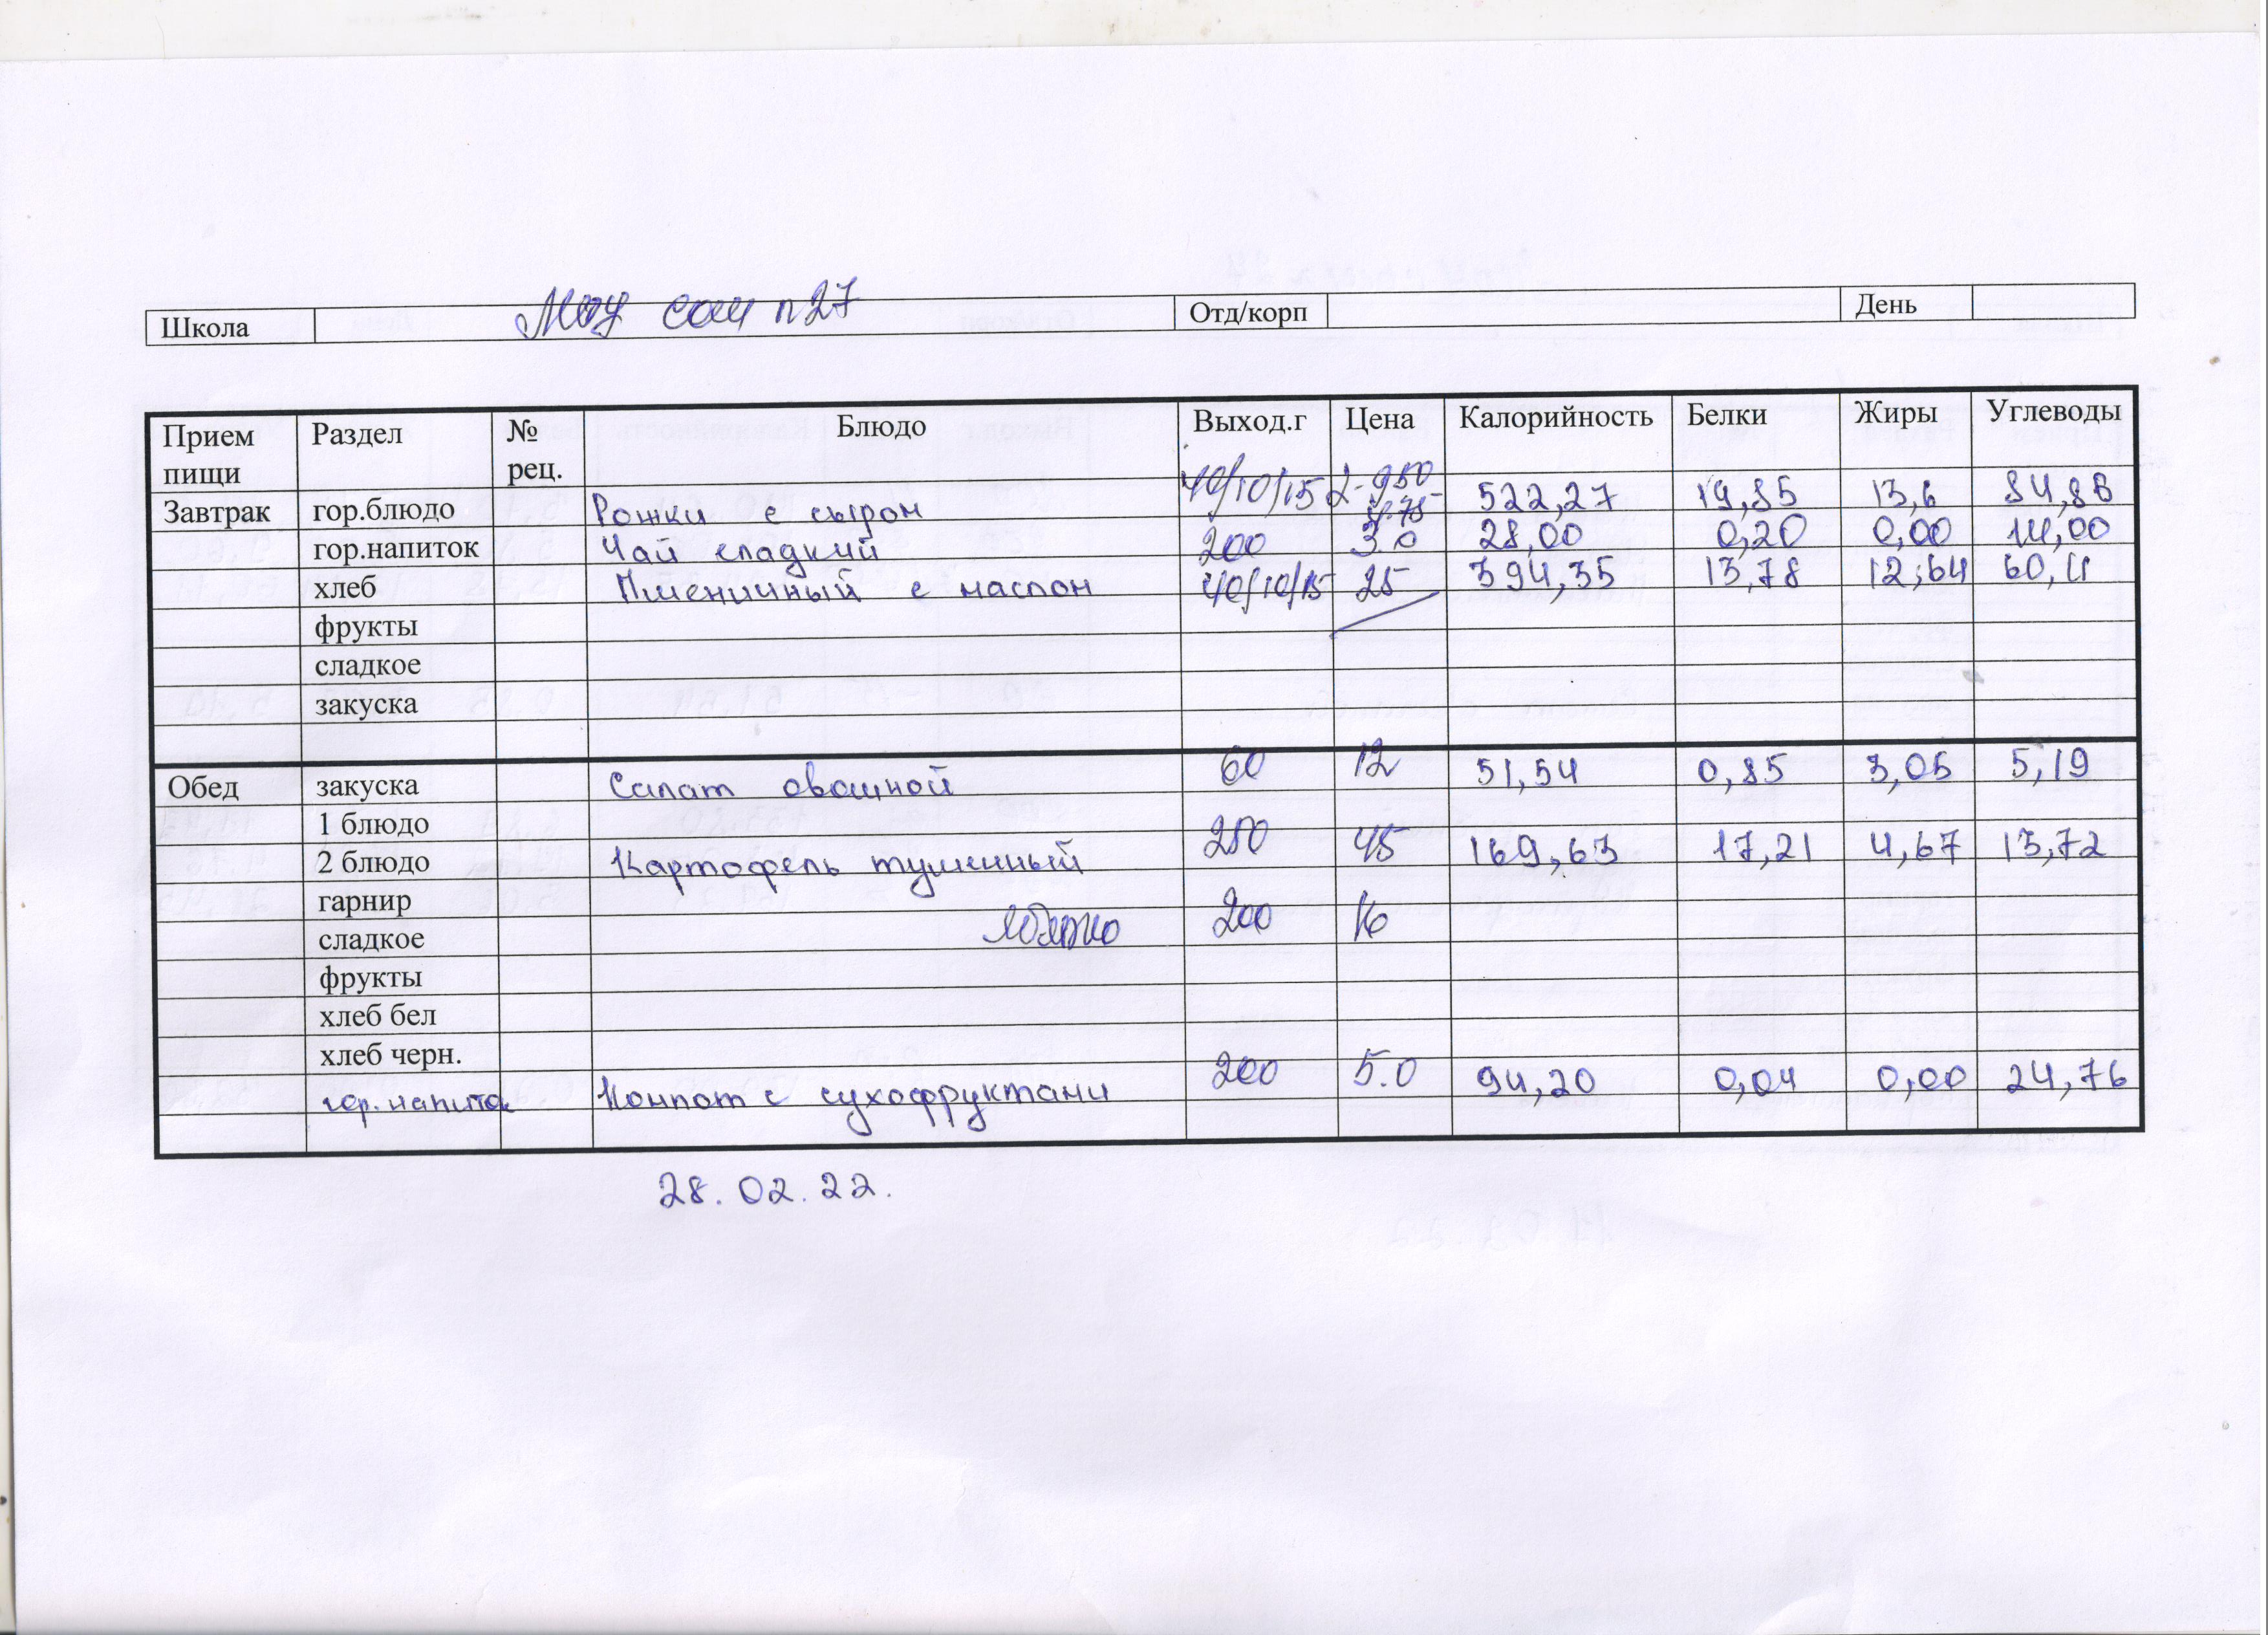 Школа Моу сош п 27 Отд/корп День
Прием пищи Раздел № рец. Блюдо Выход.г Цена Калорийность Белки Жиры Углеводы
Завтрак гор.блюдо Рожки с сыром 40/10/15 522,27 19,85 13,6 84,86
гор.напиток Чай сладкий 200 3.0 28,00 0,20 0,00 14,00
хлеб Пшеничный с маслом 40/10/15 25 394,35 13,78 12,64 60,11
фрукты
сладкое
закуска
Обед закуска Салат овощной 60 12 51,54 0,85 3,05 5,19
1 блюдо
2 блюдо Картофель тушенный 250 45 169,63 17,21 4,67 13,72
гарнир
сладкое яблоко 200 16
фрукты
хлеб бел
хлеб черн.
гор. напиток Компот с сухофруктами 200 5.0 94,20 0,04 0,00 24,76
28.02.22.